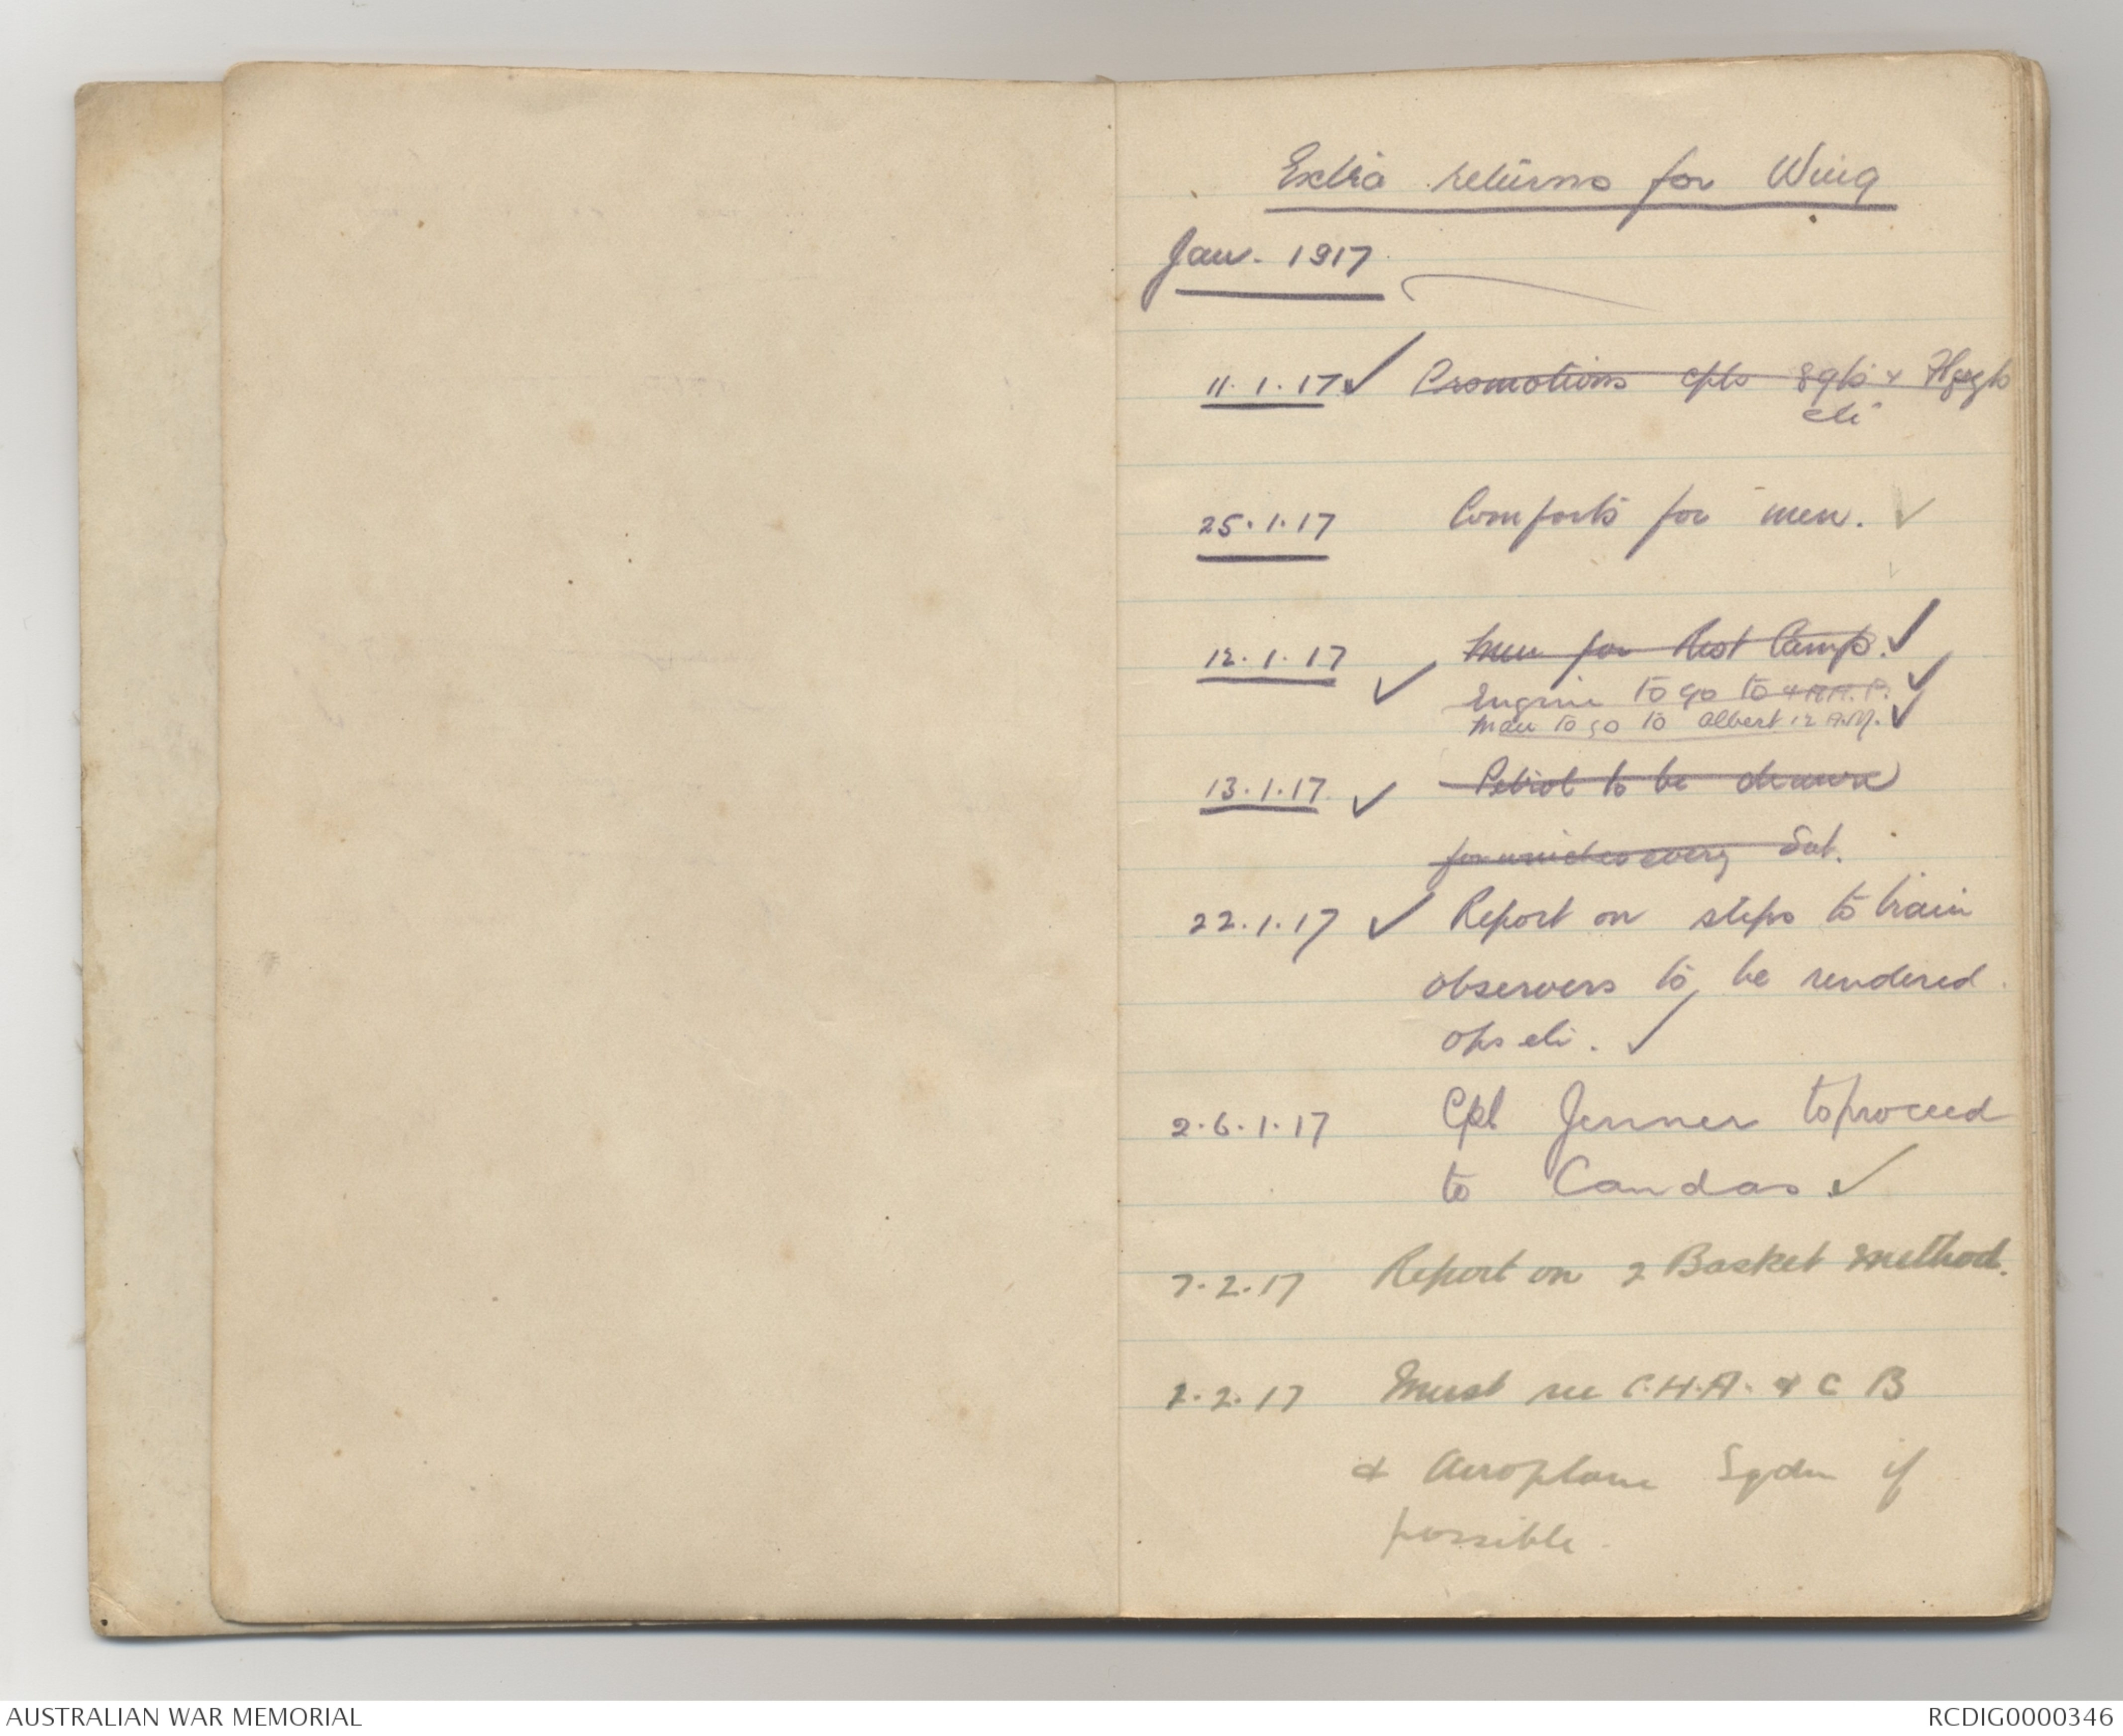 Extra returns for Wing
Jan. 1917
11.1.17 ✓ Promotions cpls sgts & Flgts
etc
25.1.17 Comforts for men. ✓
12.1.17 ✓ Men for Rest Camp. ✓
Engine to go to 4 A.A.P. ✓
Man to go to Albert 12 A.M. ✓
13.1.17 ✓ Petrol to be drawn
for every Sat.
22.1.17 ✓ Report on steps to train
observers to be rendered
obs etc. ✓
2.6.1.17 Cpl Jenner to proceed
to Candas ✓
7.2.17 Report on 2 Basket method.
2.2.17 Must see C.H.A. & C B
& Aeroplane Sqdn if
possible.
AUSTRALIAN WAR MEMORIAL
RCDIG0000346